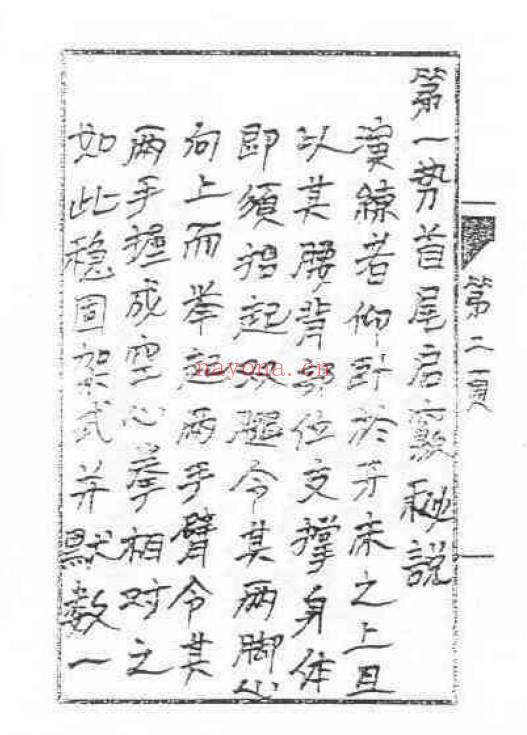 第二頁
第一势首尾启窍秘説
演練者仰卧於牙床之上且
以其腰背部位支撑身体
即须抬起双腿令其两脚心
向上而举起两手臂令其
两手握成空心拳相对之
如此稳固架式并默数一
hayona.cn